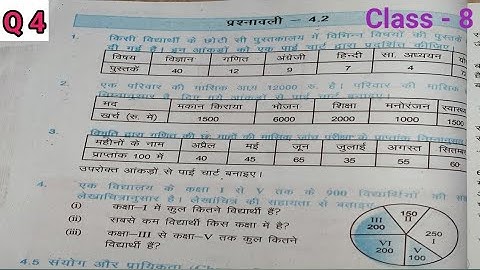 Q 4
Class - 8
प्रश्नावली – 4.2
1. किसी विद्यार्थी के छोटी सी पुस्तकालय में विभिन्न विषयों की पुस्तकें
दी गई है। इन आंकड़ों को एक पाई चार्ट द्वारा प्रदर्शित कीजिए
विषय विज्ञान गणित अंग्रेजी हिन्दी सा. अध्ययन
पुस्तकें 40 12 9 7 4 72
2. एक परिवार की मासिक आय 12000 रु. है। परिवार की मासिक
मद मकान किराया भोजन शिक्षा मनोरंजन स्वास्थ्य
खर्च (रु. में) 1500 6000 2000 1000 1500
3. द्वारा गणित की छः माहों की मासिक जांच परीक्षा के प्राप्तांक निम्नानुसार
महीनों के नाम अप्रैल मई जून जुलाई अगस्त सितम्बर
प्राप्तांक 100 में 40 45 65 35 55 60
उपरोक्त आंकड़ों से पाई चार्ट बनाइए।
4. एक विद्यालय के कक्षा I से V तक के 900 विद्यार्थियों की
लेखाचित्रानुसार है। लेखाचित्र की सहायता से बताइए
(i) कक्षा–I में कुल कितने विद्यार्थी हैं?
(ii) सबसे कम विद्यार्थी किस कक्षा में है?
(iii) कक्षा–III से कक्षा–V तक कुल कितने
विद्यार्थी हैं?
150 II
III 200
250 I
VI 200
V 100
4.5 संयोग और प्रायिकता